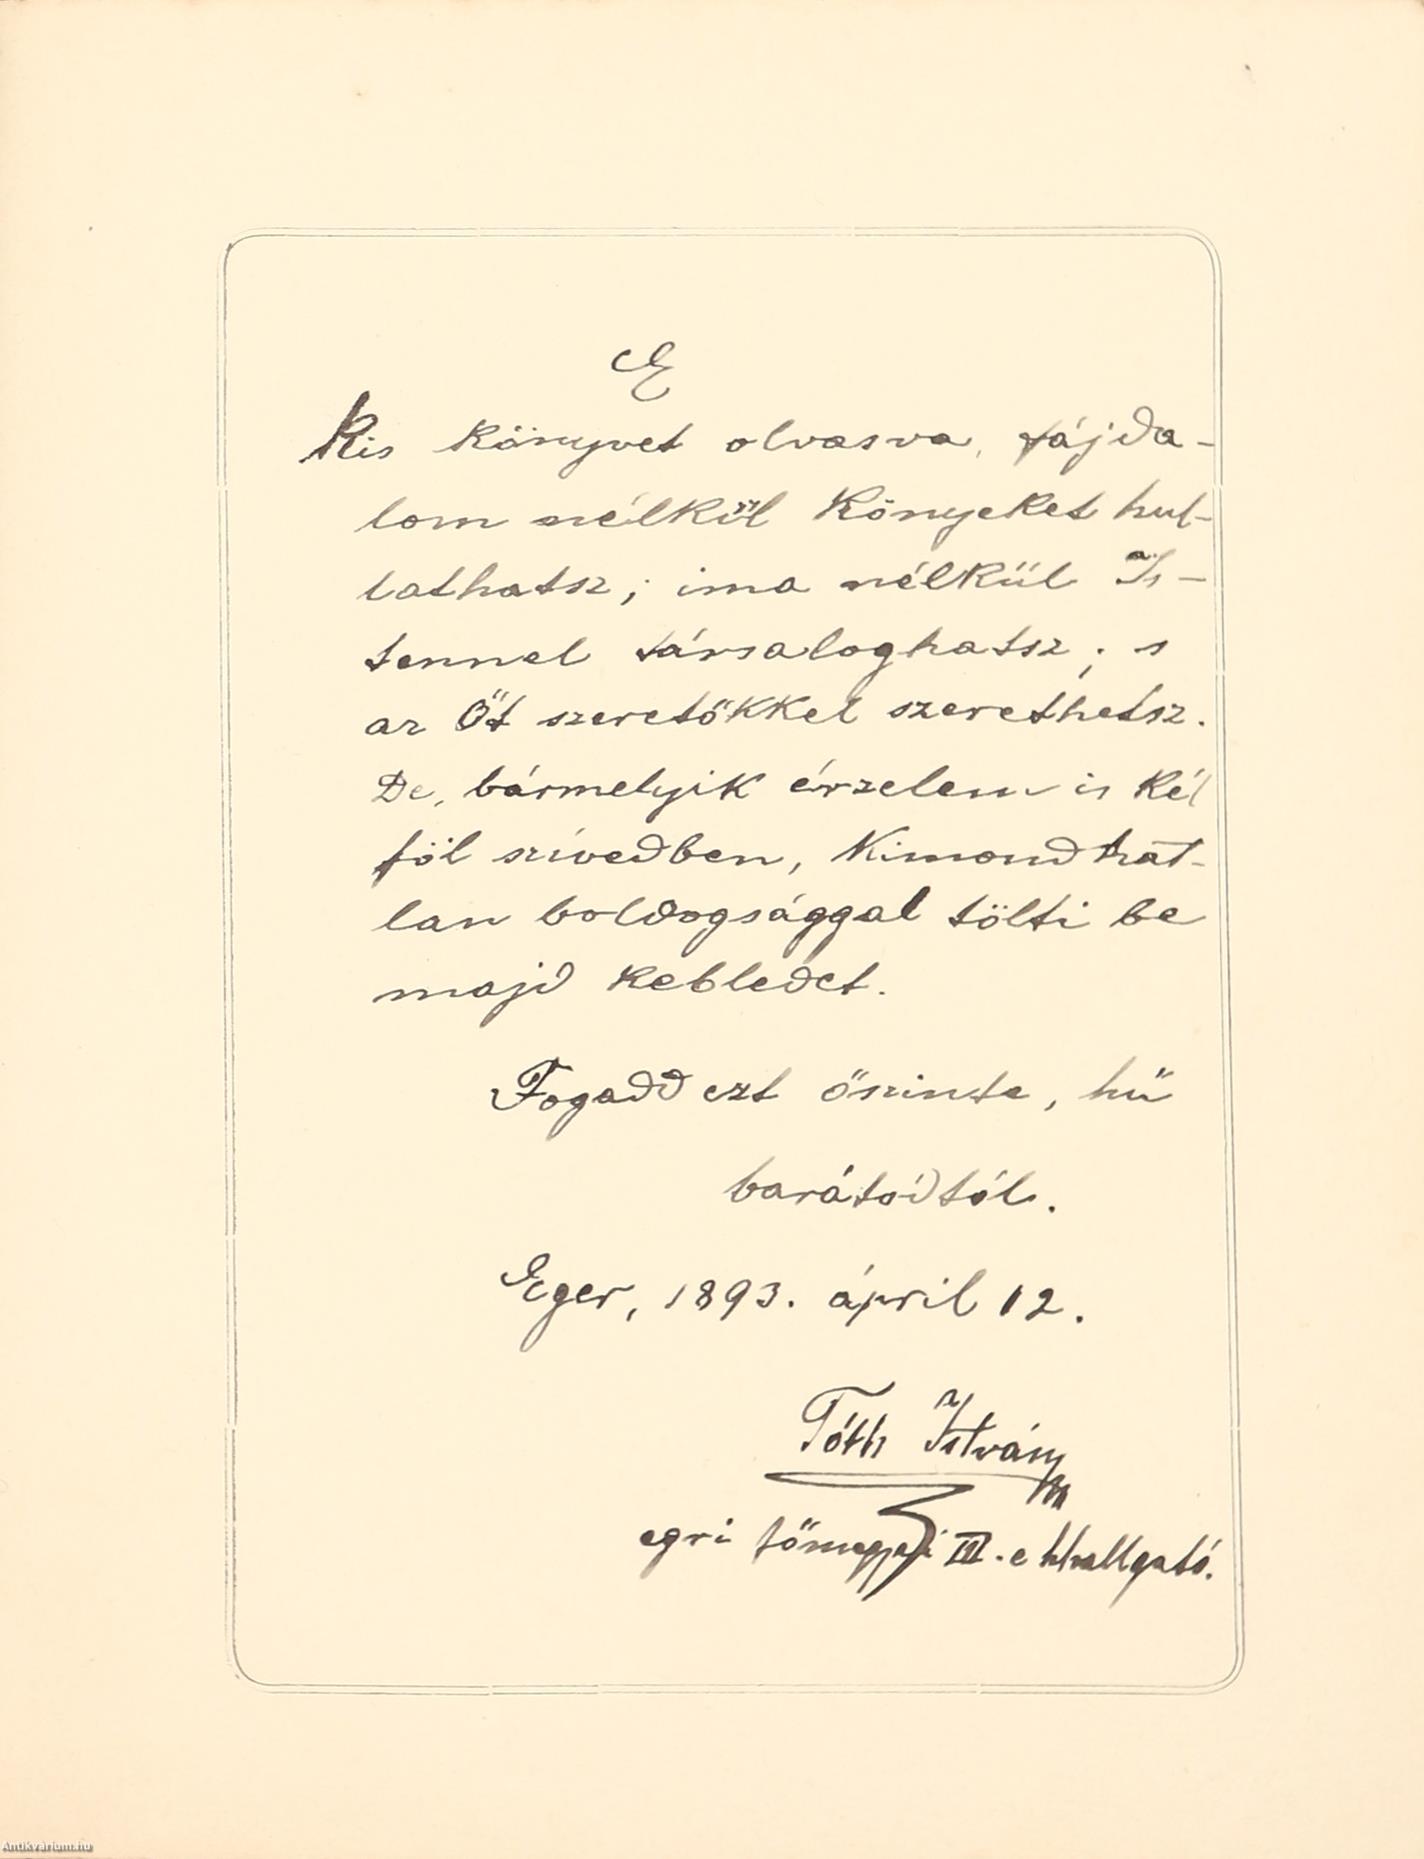 E
Kis könyvet olvasva, fájda-
lom nélkül könyeket hul-
lathatsz; ima nélkül Is-
tennel társaloghatsz; s
az Őt szeretőkkel szerethetsz.
De, bármelyik érzelem is kél
föl szívedben, kimondhat-
lan boldogsággal tölti be
majd kebledet.
Fogadd ezt őszinte, hű
barátodtól.
Eger, 1893. ápril 12.
Tóth István
egri főmegyei III. é hallgató.
Antikvarium.hu